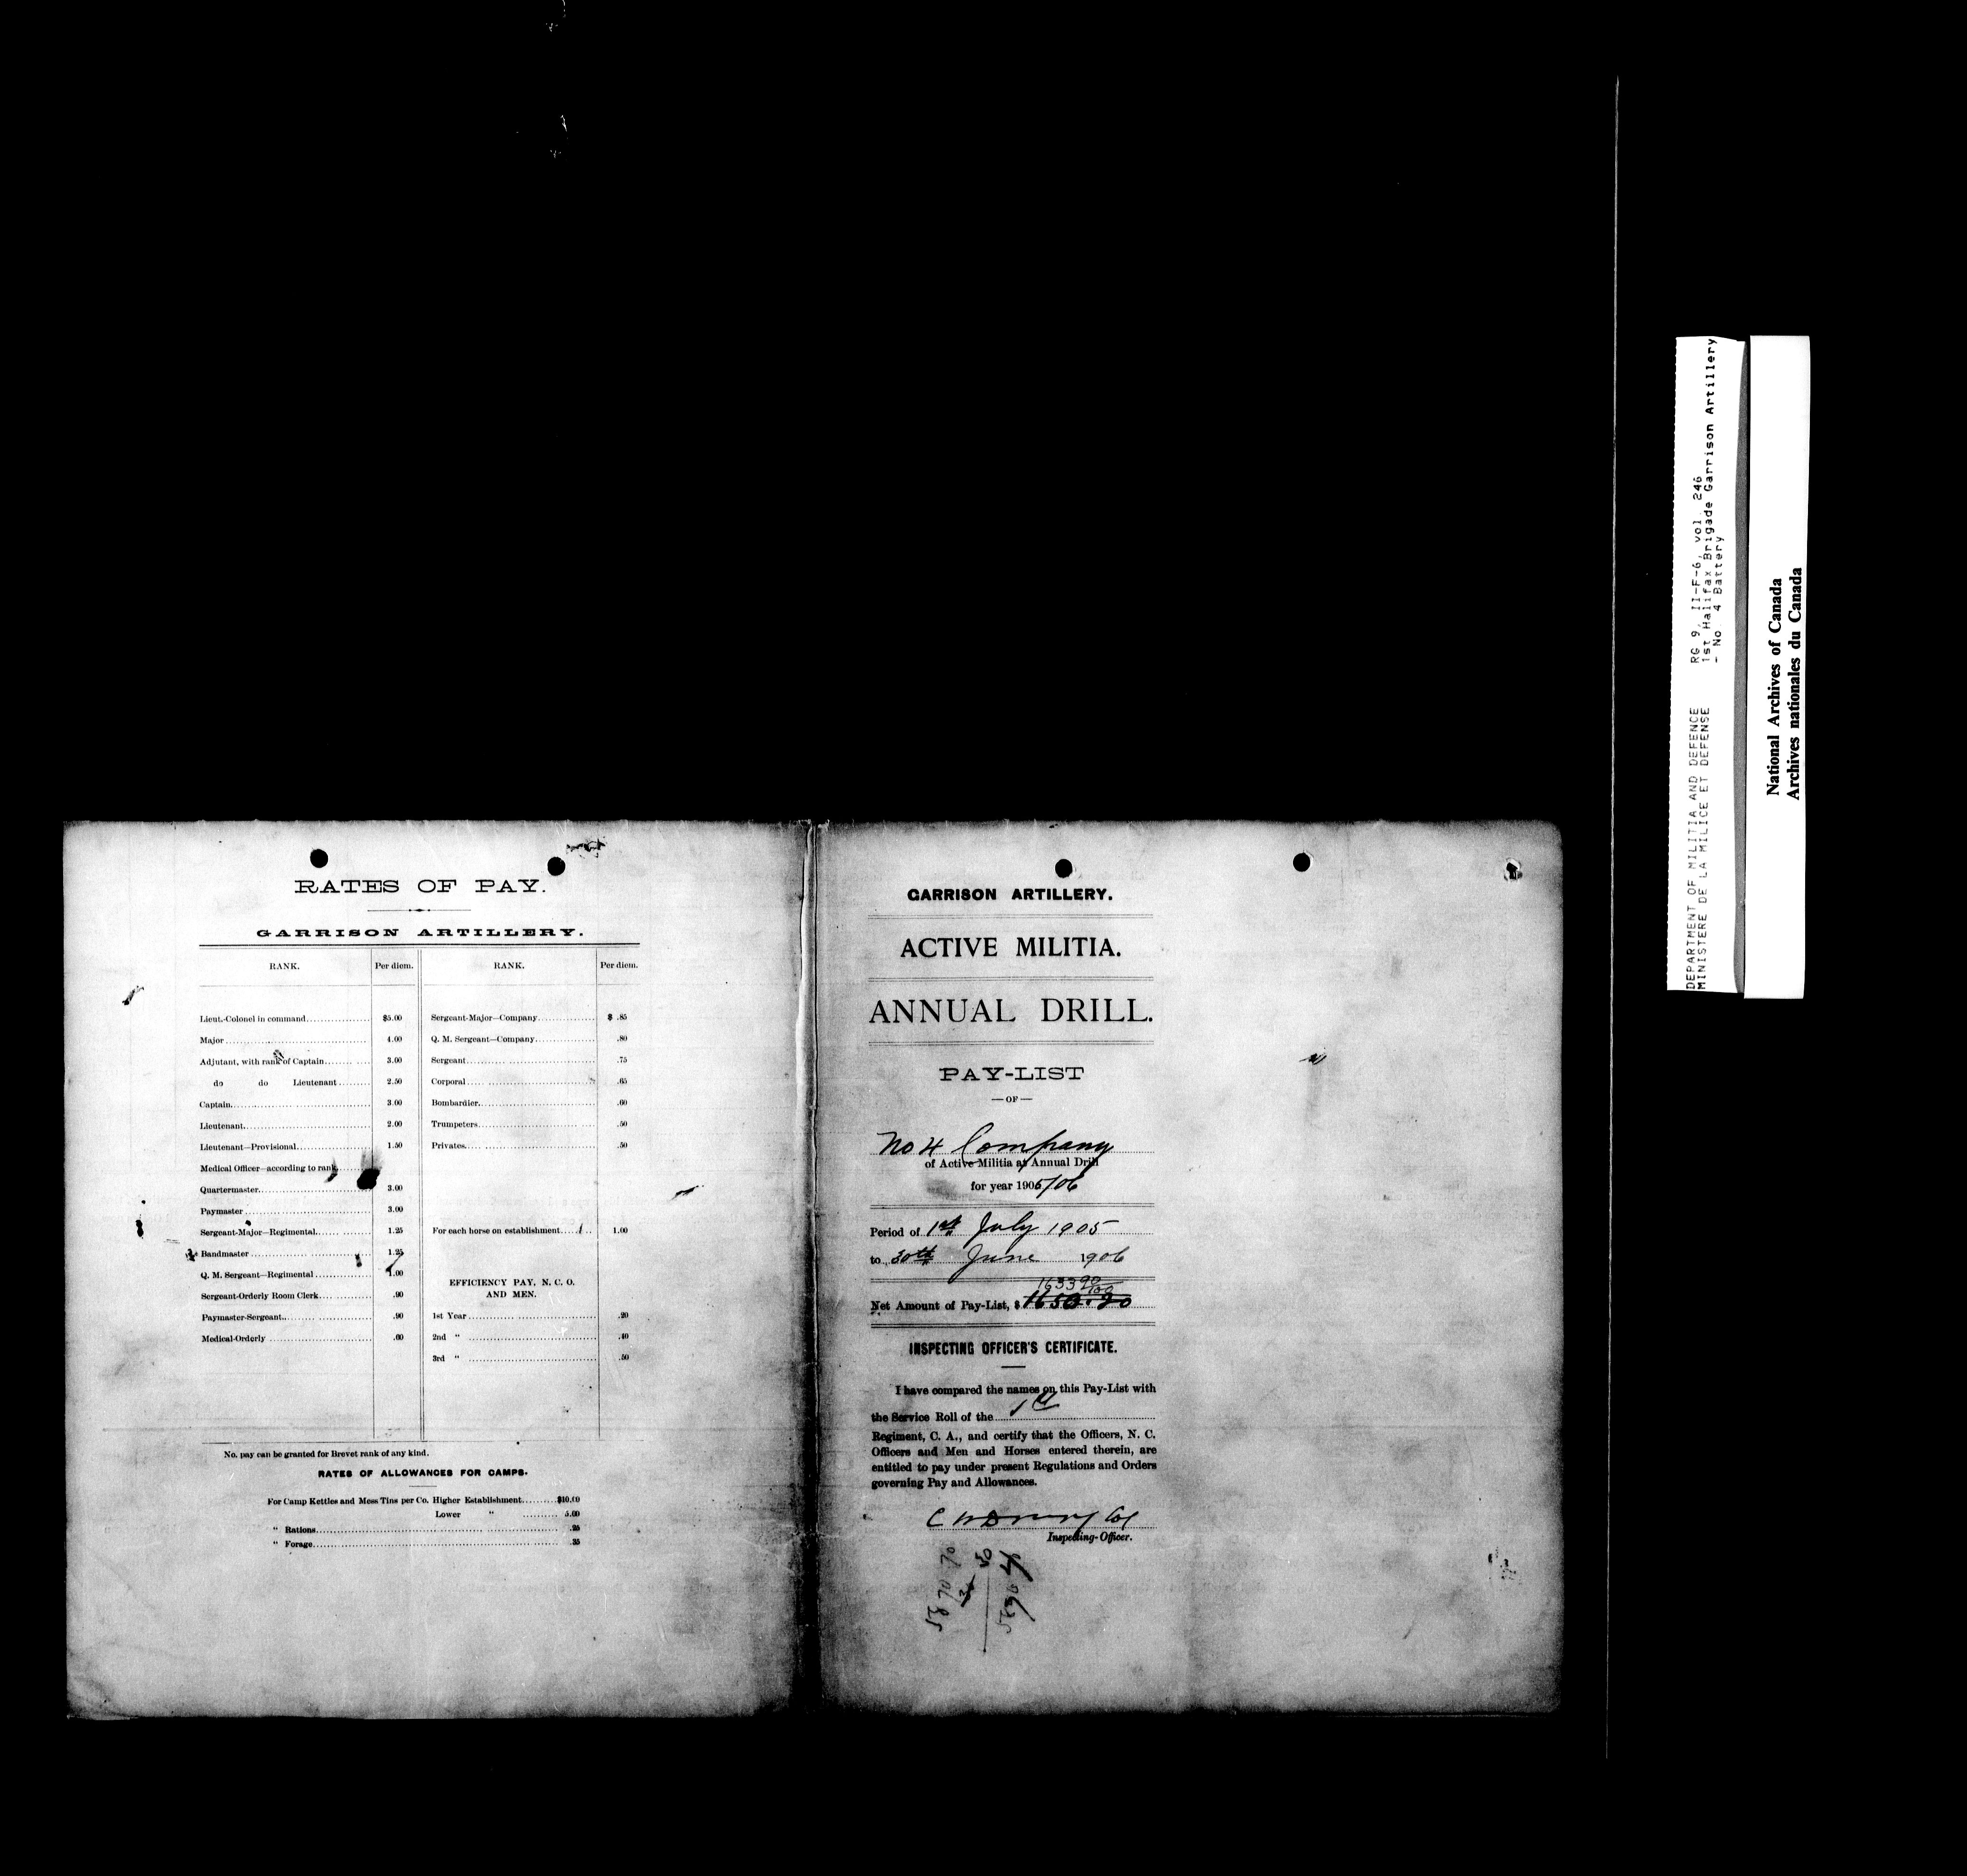 RATES OF PAY.
GARRISON ARTILLERY.
RANK. Per diem. RANK. Per diem.
Lieut.-Colonel in command $5.00 Sergeant-Major—Company $ .85
Major 4.00 Q. M. Sergeant—Company .80
Adjutant, with rank of Captain 3.00 Sergeant .75
do do Lieutenant 2.50 Corporal .65
Captain 3.00 Bombardier .60
Lieutenant 2.00 Trumpeters .50
Lieutenant—Provisional 1.50 Privates .50
Medical Officer—according to rank
Quartermaster 3.00
Paymaster 3.00
Sergeant-Major—Regimental 1.25 For each horse on establishment 1.00
Bandmaster 1.25
Q. M. Sergeant—Regimental 1.00 EFFICIENCY PAY, N. C. O.
AND MEN.
Sergeant-Orderly Room Clerk .90
Paymaster-Sergeant .90 1st Year .20
Medical-Orderly .60 2nd " .40
3rd " .50
No. pay can be granted for Brevet rank of any kind.
RATES OF ALLOWANCES FOR CAMPS.
For Camp Kettles and Mess Tins per Co. Higher Establishment $10.00
Lower " 5.00
" Rations .25
" Forage .35
GARRISON ARTILLERY.
ACTIVE MILITIA.
ANNUAL DRILL.
PAY-LIST
—OF—
No 4 Company
of Active Militia at Annual Drill
for year 1905/06
Period of 1st July 1905
to 30th June 1906
1633 90/100
Net Amount of Pay-List, $
INSPECTING OFFICER'S CERTIFICATE.
I have compared the names on this Pay-List with
the Service Roll of the 1st
Regiment, C. A., and certify that the Officers, N. C.
Officers and Men and Horses entered therein, are
entitled to pay under present Regulations and Orders
governing Pay and Allowances.
Col
Inspecting-Officer.
5870 70
DEPARTMENT OF MILITIA AND DEFENCE
MINISTERE DE LA MILICE ET DEFENSE
RG 9, II-F-6, vol. 246
1st Halifax Brigade Garrison Artillery
- No 4 Battery
National Archives of Canada
Archives nationales du Canada